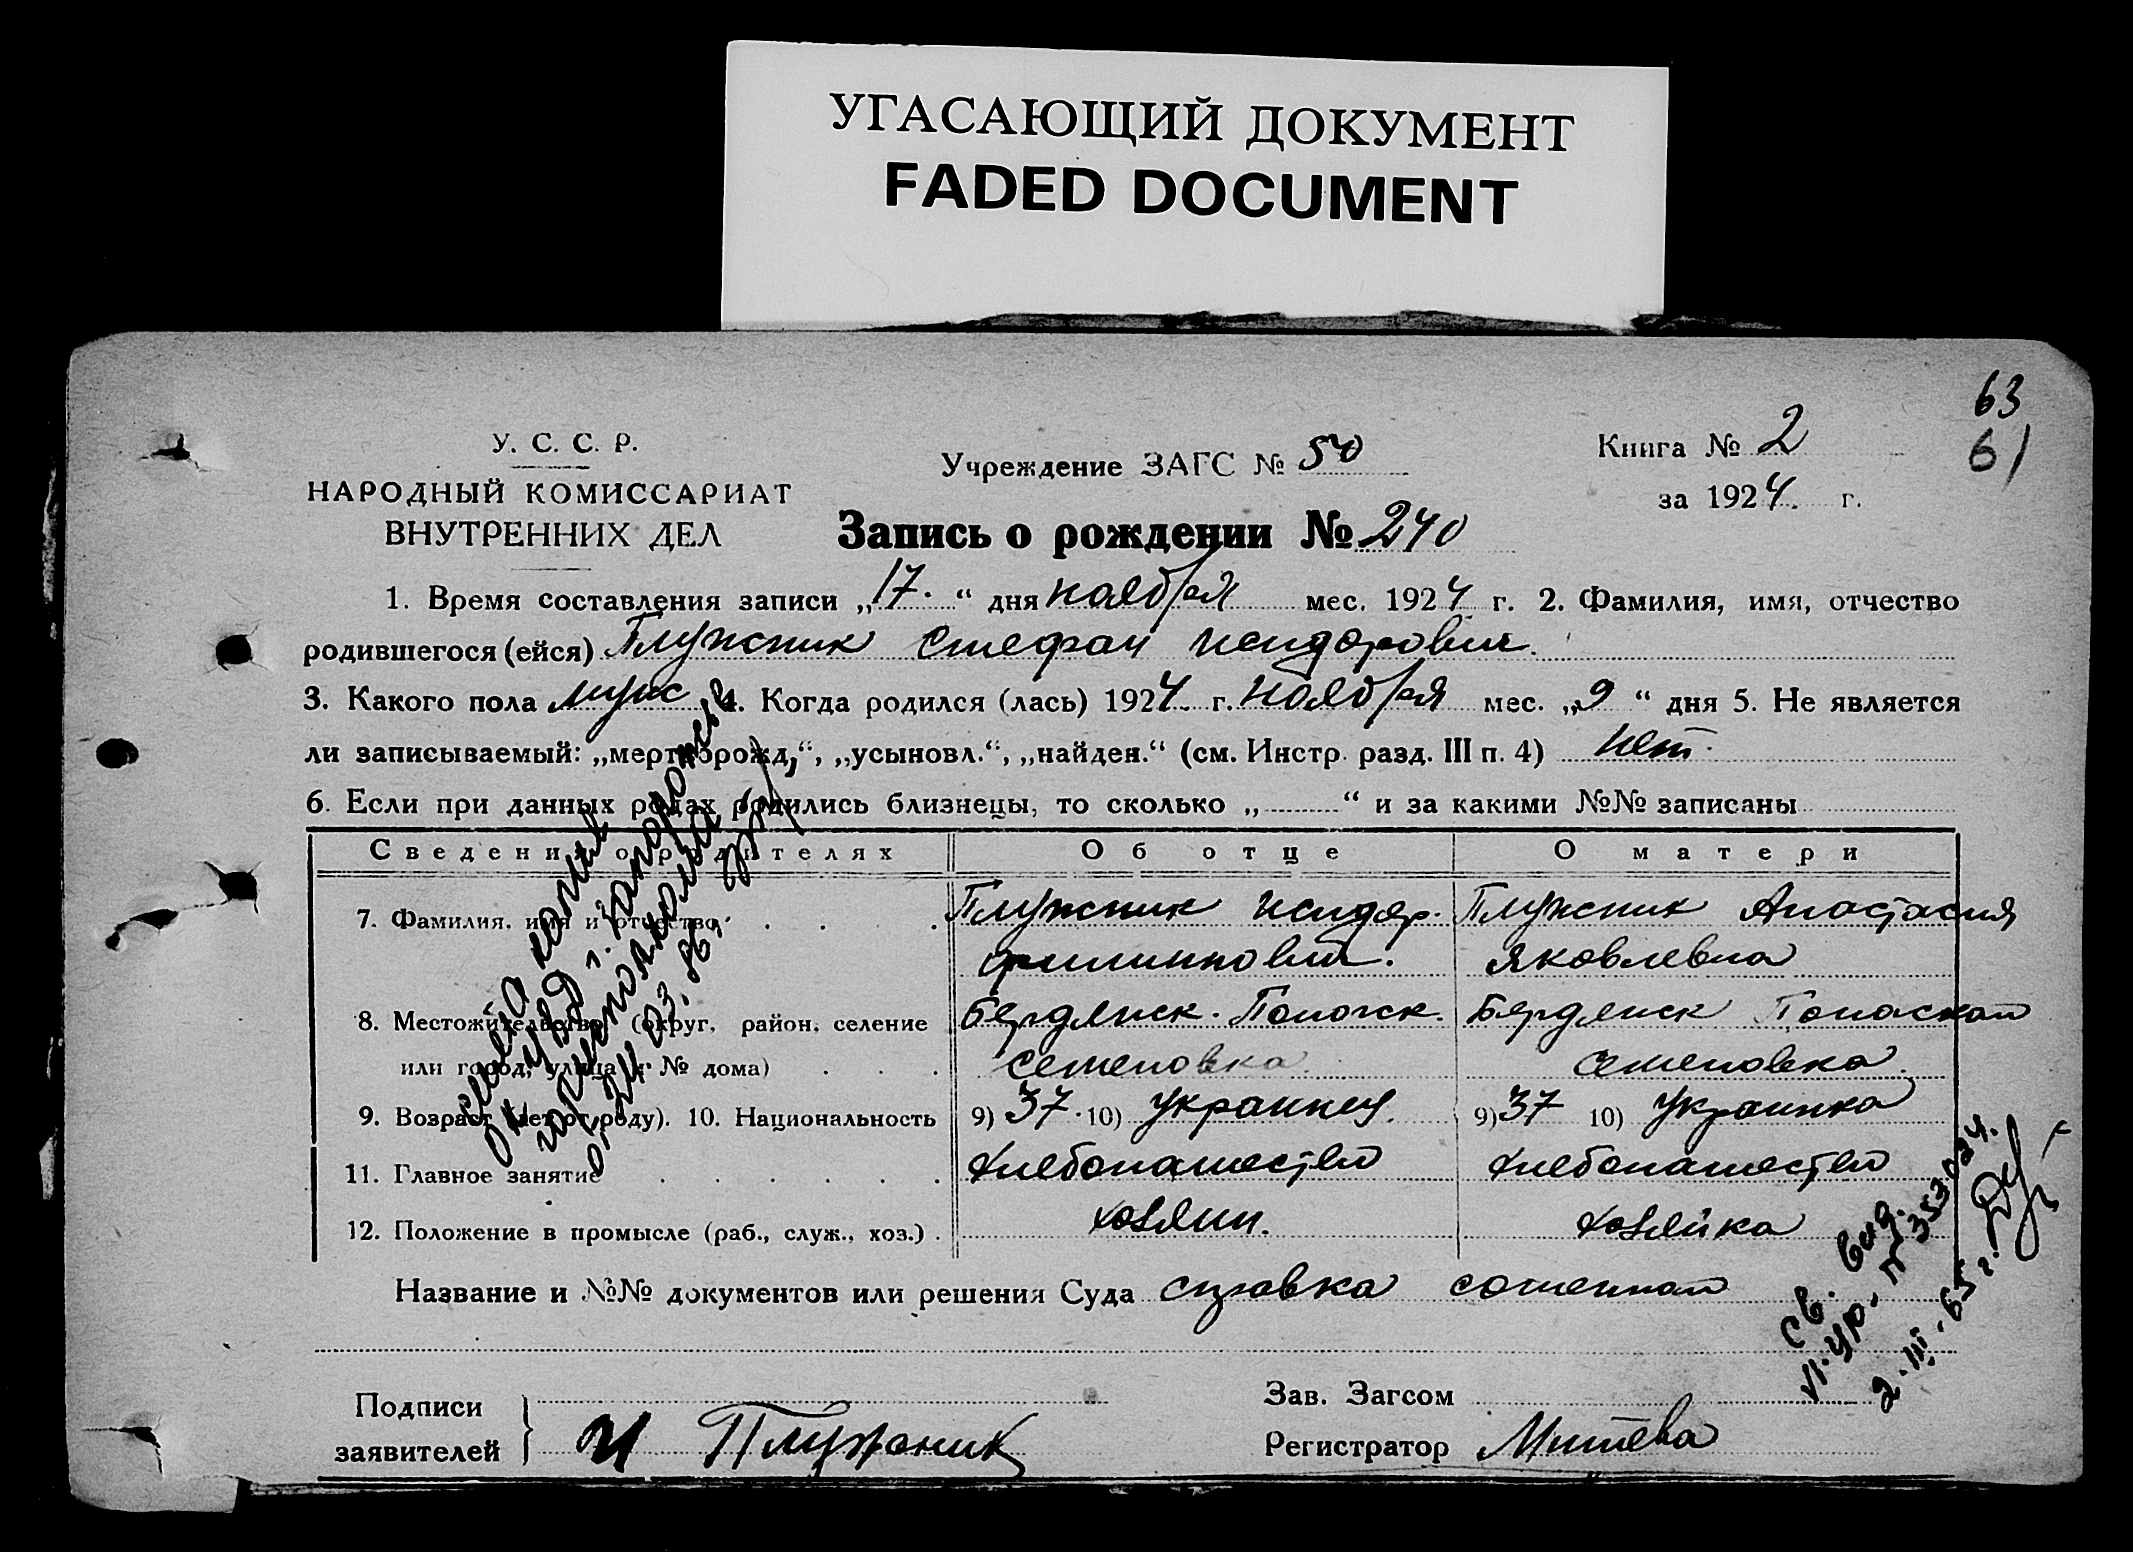 УГАСАЮЩИЙ ДОКУМЕНТ
FADED DOCUMENT
63
61
У. С. С. Р.
НАРОДНЫЙ КОМИССАРИАТ
ВНУТРЕННИХ ДЕЛ
Учреждение ЗАГС № 50
Книга № 2
за 1924 г.
Запись о рождении № 240
1. Время составления записи „17.“ дня ноября мес. 1924 г. 2. Фамилия, имя, отчество
родившегося (ейся) Плужник Стефан Исидорович.
3. Какого пола муж 4. Когда родился (лась) 1924 г. ноября мес. „9“ дня 5. Не является
ли записываемый: „мертворожд.“, „усыновл.“, „найден.“ (см. Инстр. разд. III п. 4) нет.
6. Если при данных родах родились близнецы, то сколько „ “ и за какими №№ записаны
Сведения о родителях Об отце О матери
7. Фамилия, имя и отчество Плужник Исидор. Плужник Анастасия
филиппович. Яковлевна
8. Местожительство (округ, район, селение Бердянск. Попоск.
или город, улица и № дома) Семеновка Семеновка
9. Возраст (лет от роду). 10. Национальность 9) 37. 10) Украинец. 9) 37 10) Украинка
11. Главное занятие хлебопашество хлебопашество
12. Положение в промысле (раб., служ., хоз.) хозяин. хозяйка
Название и №№ документов или решения Суда справка
Подписи
заявителей } И Плужник
Зав. Загсом
Регистратор Митева
св. выд.
353024.
2.III.65 г.